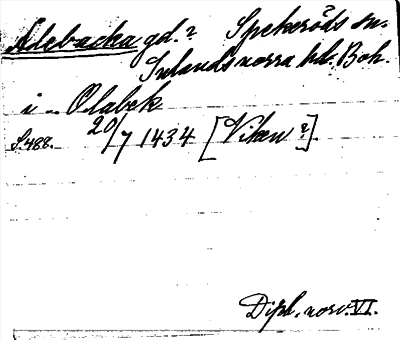 Alebacka gd.? Spekeröds sn.
Inlands norra hd. Boh.
i - Olabek
S. 488. 20/7 1434 [Viken?].
Dipl. norv. VI.